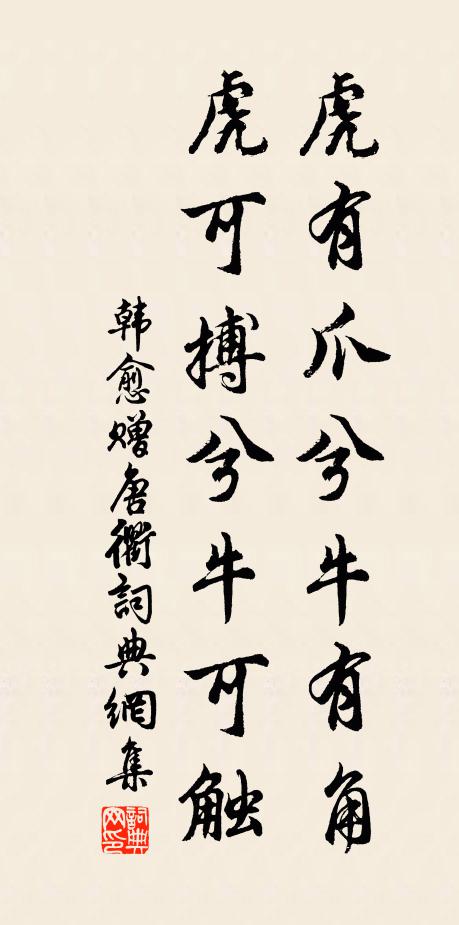 虎有爪兮牛有角
虎可搏兮牛可触
韩愈赠唐衢詞典網集
詞典
网印